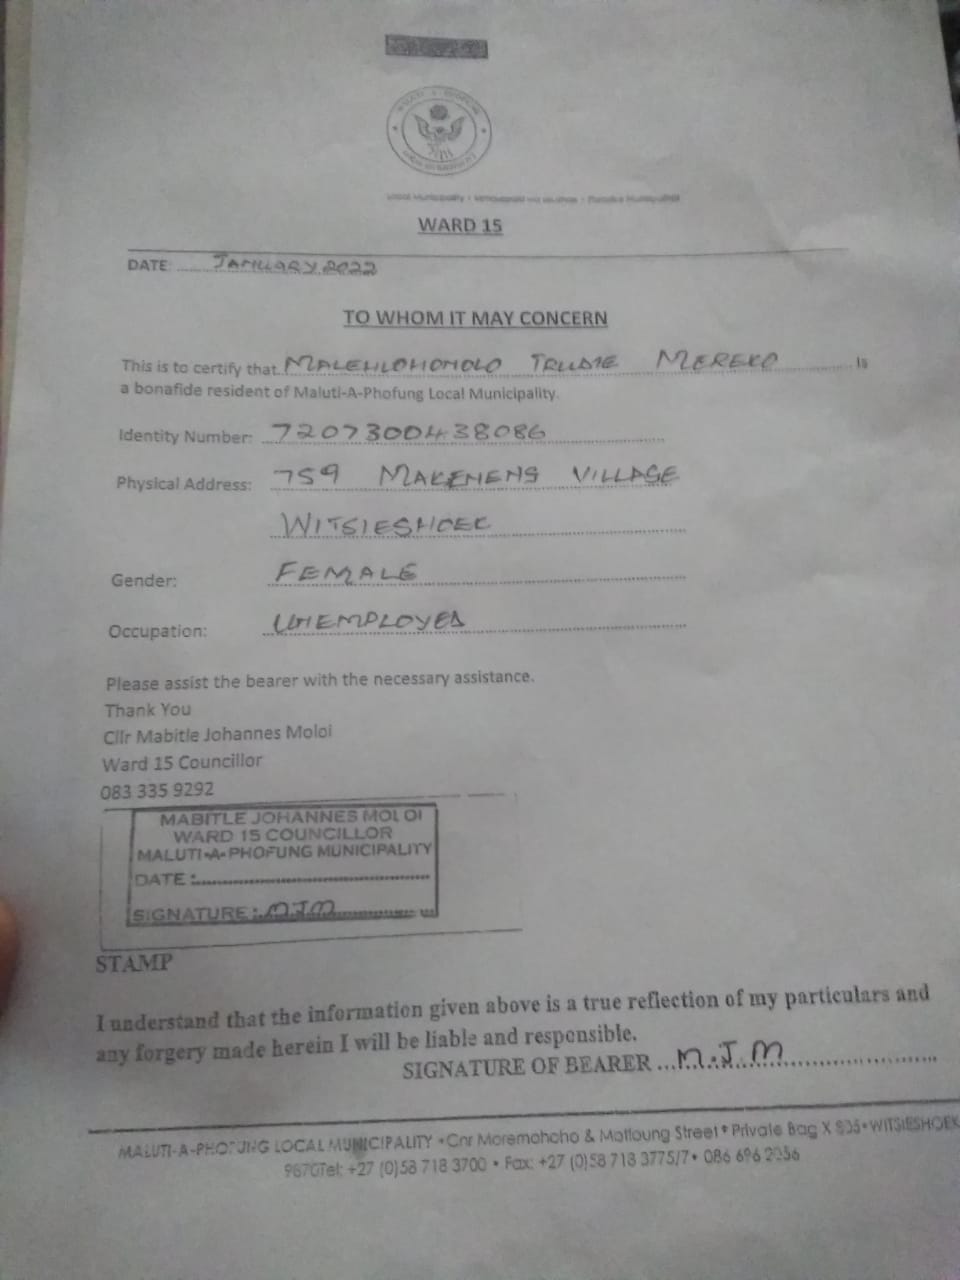 Local Municipality
WARD 15
DATE: JANUARY 2022
TO WHOM IT MAY CONCERN
This is to certify that MALEHLOHONOLO TRUDIE MEREKO is
a bonafide resident of Maluti-A-Phofung Local Municipality.
Identity Number: 7207300438086
Physical Address: 759 MAKENENG VILLAGE
WITSIESHOEK
Gender: FEMALE
Occupation: UNEMPLOYED
Please assist the bearer with the necessary assistance.
Thank You
Cllr Mabitle Johannes Moloi
Ward 15 Councillor
083 335 9292
MABITLE JOHANNES MOLOI
WARD 15 COUNCILLOR
MALUTI-A-PHOFUNG MUNICIPALITY
DATE:
SIGNATURE: M.J.M
STAMP
I understand that the information given above is a true reflection of my particulars and
any forgery made herein I will be liable and responsible.
SIGNATURE OF BEARER M.J.M
MALUTI-A-PHOFUNG LOCAL MUNICIPALITY • Cnr Moremoholo & Motloung Street • Private Bag X 805 • WITSIESHOEK
9870 Tel: +27 (0)58 718 3700 • Fax: +27 (0)58 718 3775/7 • 086 696 2356